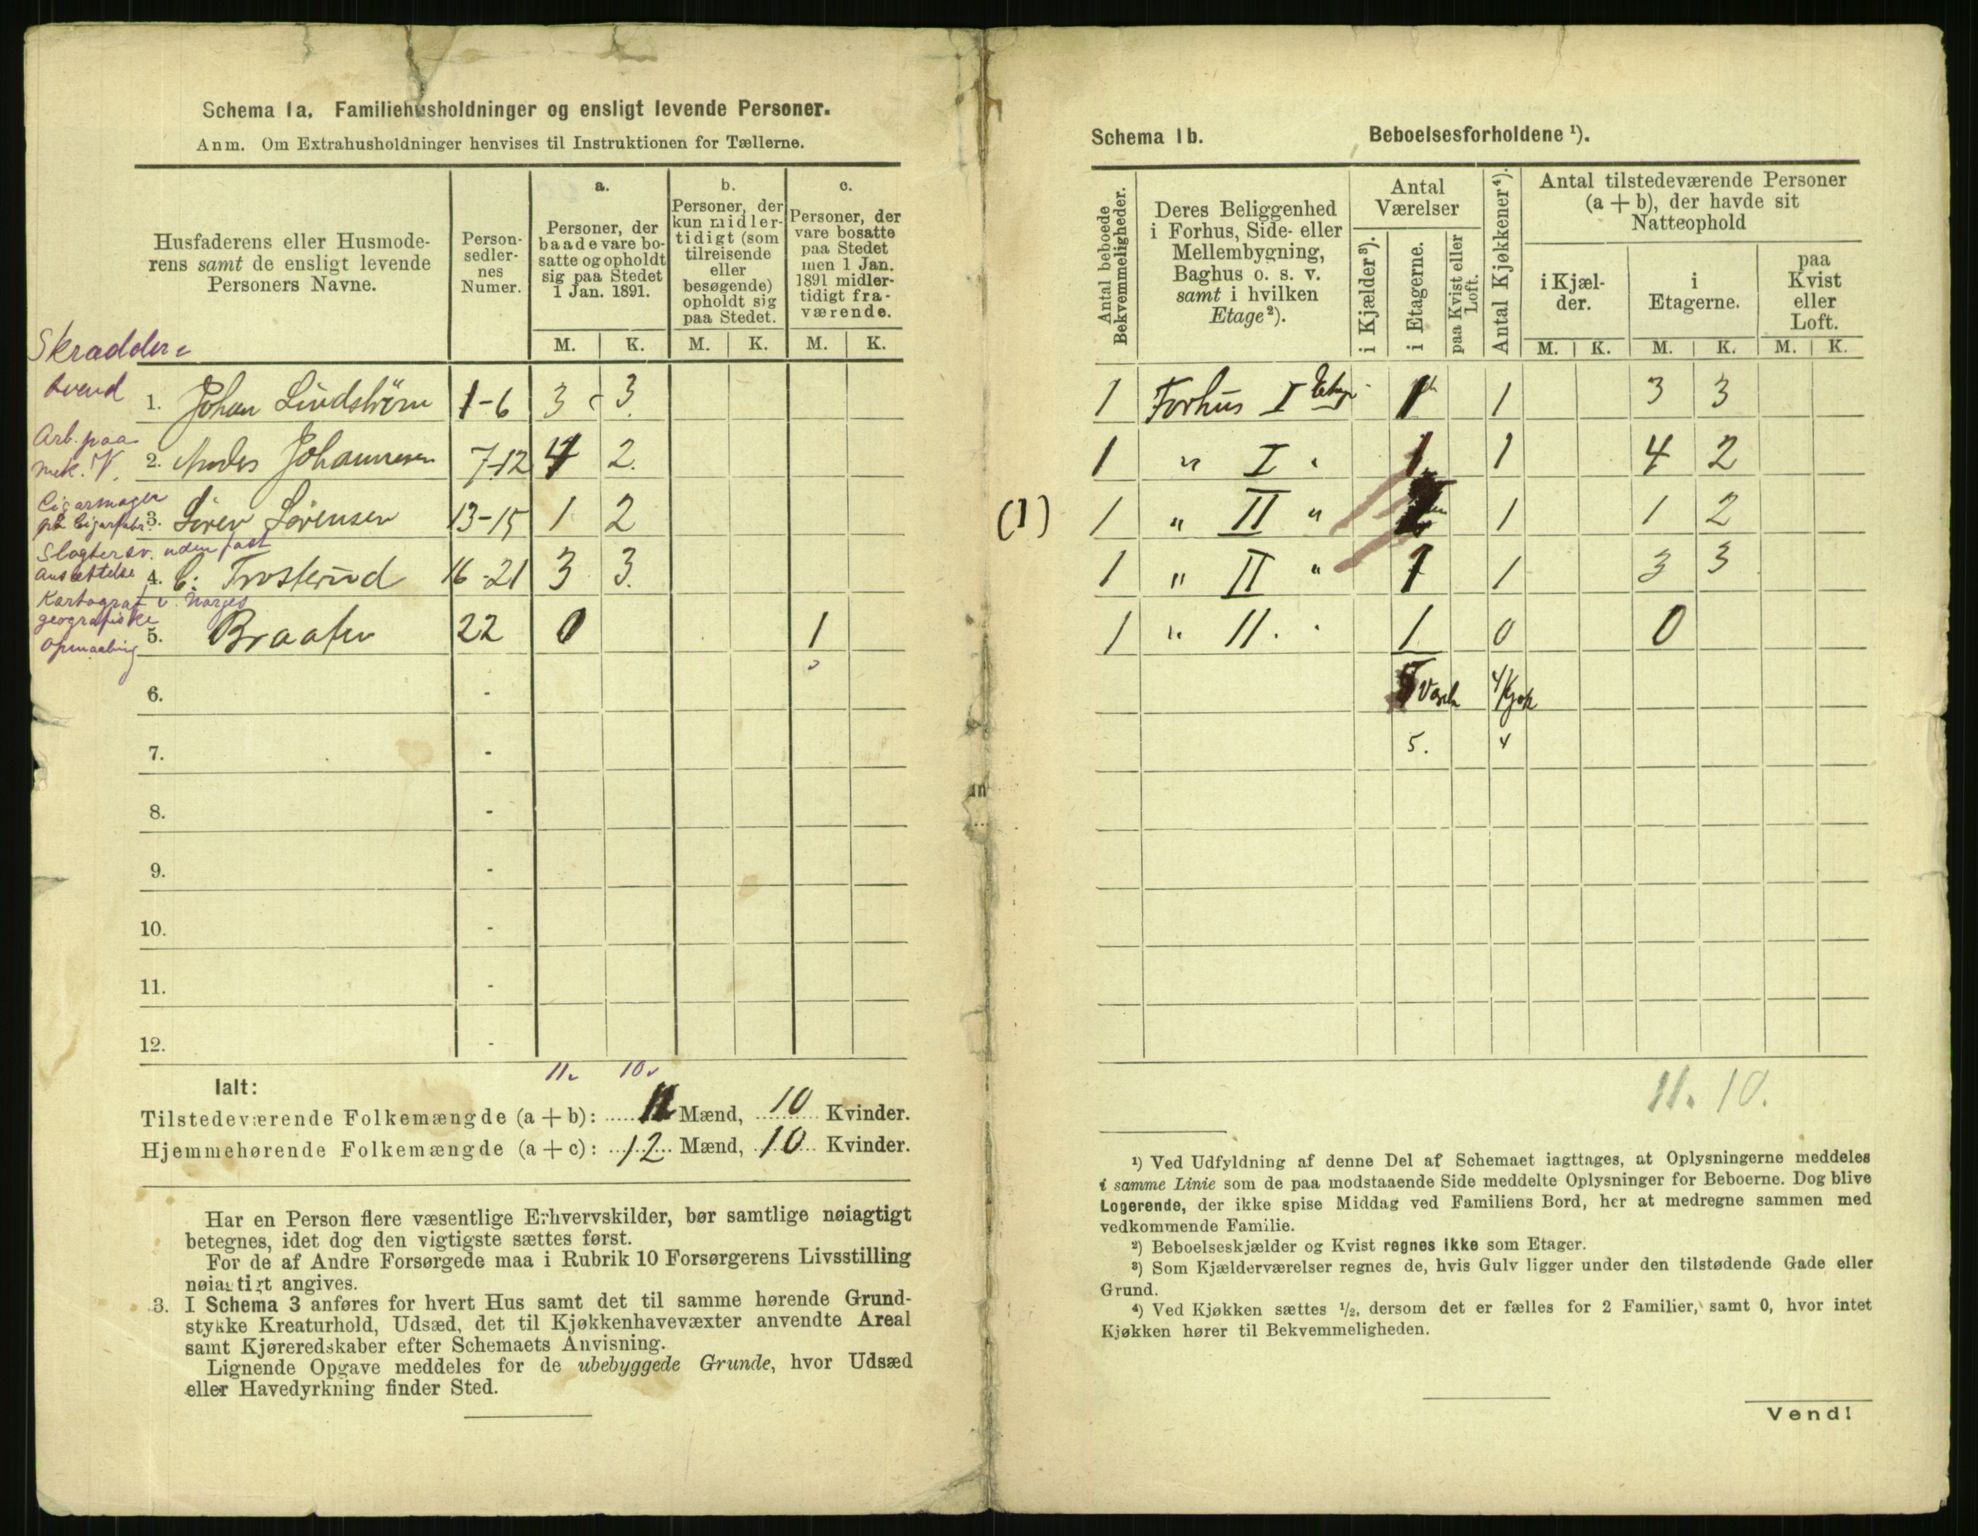 Schema 1a. Familiehusholdninger og ensligt levende Personer.
Anm. Om Extrahusholdninger henvises til Instruktionen for Tællerne.
Husfaderens eller Husmode-
rens samt de ensligt levende
Personers Navne.
Person-
sedler-
nes
Numer.
a.
Personer, der
baade vare bo-
satte og opholdt
sig paa Stedet
1 Jan. 1891.
b.
Personer, der
kun midler-
tidigt (som
tilreisende
eller
besøgende)
opholdt sig
paa Stedet.
c.
Personer, der
vare bosatte
paa Stedet
men 1 Jan.
1891 midler-
tidigt fra-
værende.
M. K. M. K. M. K.
Skrædder=
svend
1. Johan Lindstrøm 1-6 3 3
Arb. paa
mek. V.
2. Andes Johannesen 7-12 4 2
Cigarmager
paa Cigarfabr.
3. Sören Sörensen 13-15 1 2
Slagtersv. uden fast
Ansættelse
4. C. Trosterud 16-21 3 3
Kartograf v. Norges
geografiske
Opmaaling
5. Braaten 22 0 1
6. -
7. -
8. -
9. -
10. -
11. -
12. -
11. 10.
Ialt:
Tilstedeværende Folkemængde (a + b): 11 Mænd, 10 Kvinder.
Hjemmehørende Folkemængde (a + c): 12 Mænd, 10 Kvinder.
Har en Person flere væsentlige Erhvervskilder, bør samtlige nøiagtigt
betegnes, idet dog den vigtigste sættes først.
For de af Andre Forsørgede maa i Rubrik 10 Forsørgerens Livsstilling
nøiagtigt angives.
3. I Schema 3 anføres for hvert Hus samt det til samme hørende Grund-
stykke Kreaturhold, Udsæd, det til Kjøkkenhavevæxter anvendte Areal
samt Kjøreredskaber efter Schemaets Anvisning.
Lignende Opgave meddeles for de ubebyggede Grunde, hvor Udsæd
eller Havedyrkning finder Sted.
Schema 1b. Beboelsesforholdene ¹).
Antal beboede
Bekvemmeligheder.
Deres Beliggenhed
i Forhus, Side- eller
Mellembygning,
Baghus o. s. v.
samt i hvilken
Etage²).
Antal
Værelser
i Kjælder³).
i Etagerne.
paa Kvist eller
Loft.
Antal Kjøkkener⁴).
Antal tilstedeværende Personer
(a + b), der havde sit
Natteophold
i Kjæl-
der.
i
Etagerne.
paa
Kvist
eller
Loft.
M. K. M. K. M. K.
1 Forhus I Etage 1 1 3 3
1 " I " 1 1 4 2
(1) 1 " II " 1 1 2
1 " II " 1 1 3 3
1 " II. " 1 0 0
5 Værels 4 Kjøk
5. 4
11. 10.
¹) Ved Udfyldning af denne Del af Schemaet iagttages, at Oplysningerne meddeles
i samme Linie som de paa modstaaende Side meddelte Oplysninger for Beboerne. Dog blive
Logerende, der ikke spise Middag ved Familiens Bord, her at medregne sammen med
vedkommende Familie.
²) Beboelseskjælder og Kvist regnes ikke som Etager.
³) Som Kjælderværelser regnes de, hvis Gulv ligger under den tilstødende Gade eller
Grund.
⁴) Ved Kjøkken sættes ½, dersom det er fælles for 2 Familier, samt 0, hvor intet
Kjøkken hører til Bekvemmeligheden.
Vend!